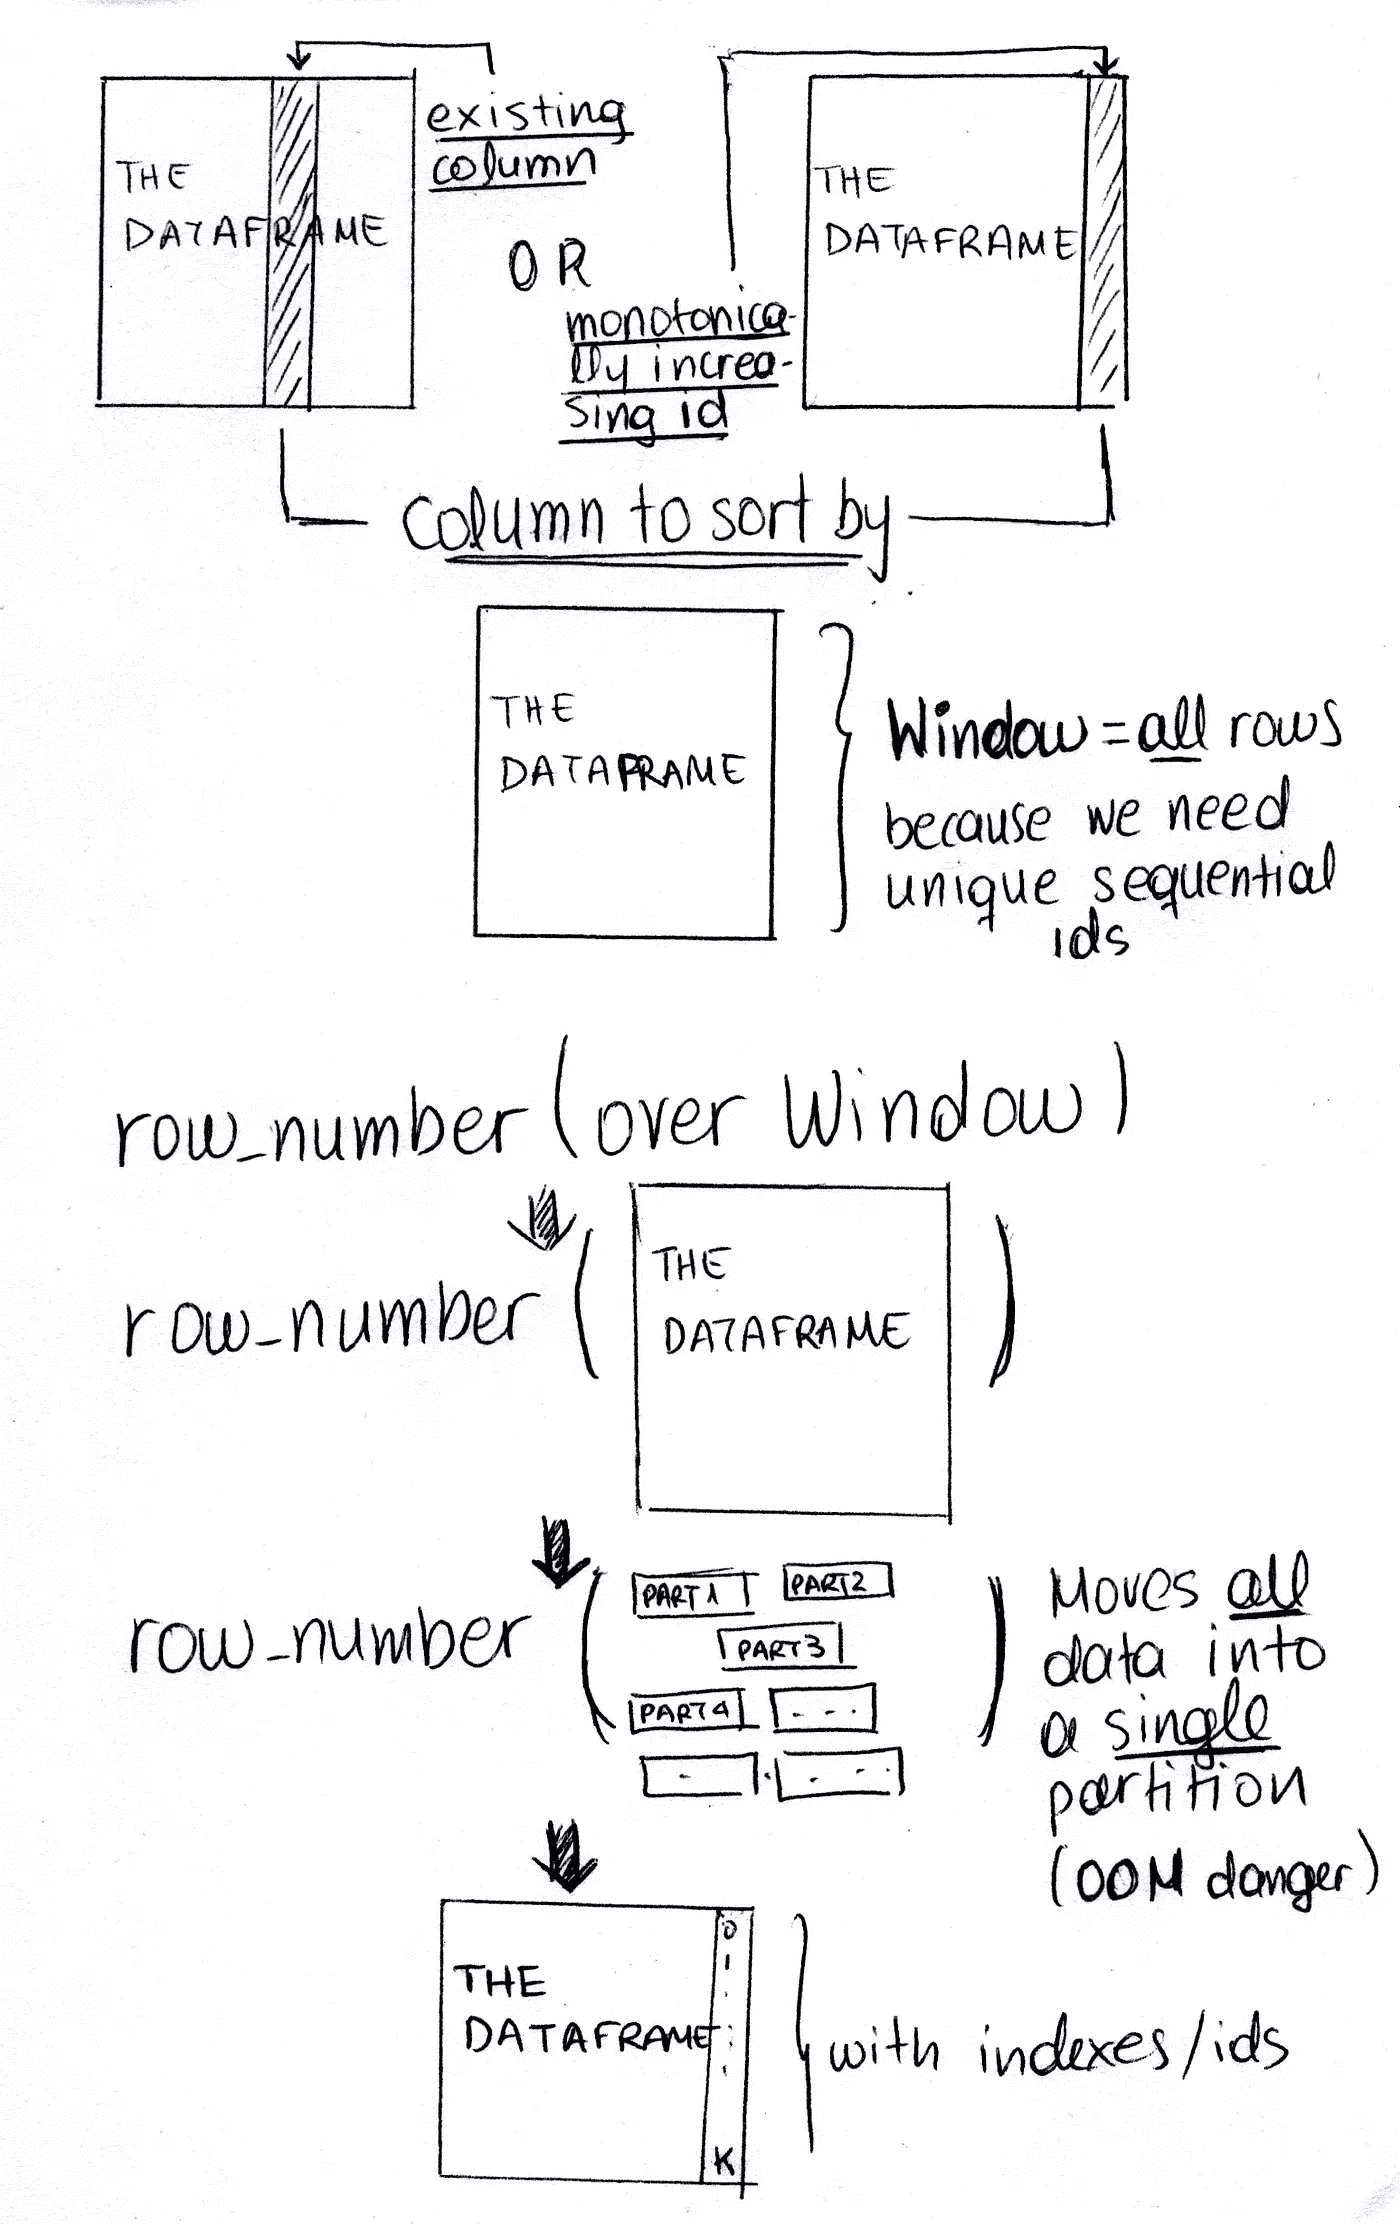 THE
DATAFRAME
existing
column
OR
monotonica-
lly increa-
sing id
THE
DATAFRAME
column to sort by
THE
DATAFRAME
Window = all rows
because we need
unique sequential
ids
row_number (over Window)
row_number (
THE
DATAFRAME
)
row_number (
PART 1 PART2
PART3
PART4 ...
. . ...
)
Moves all
data into
a single
partition
(OOM danger)
THE
DATAFRAME
0
1
:
K
with indexes/ids